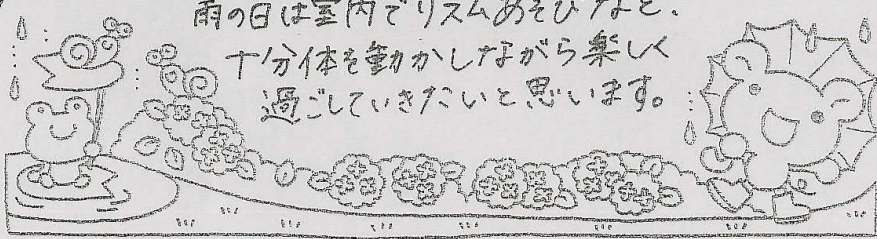 雨の日は室内でリズムあそびなど、
十分体を動かしながら楽しく
過ごしていきたいと思います。